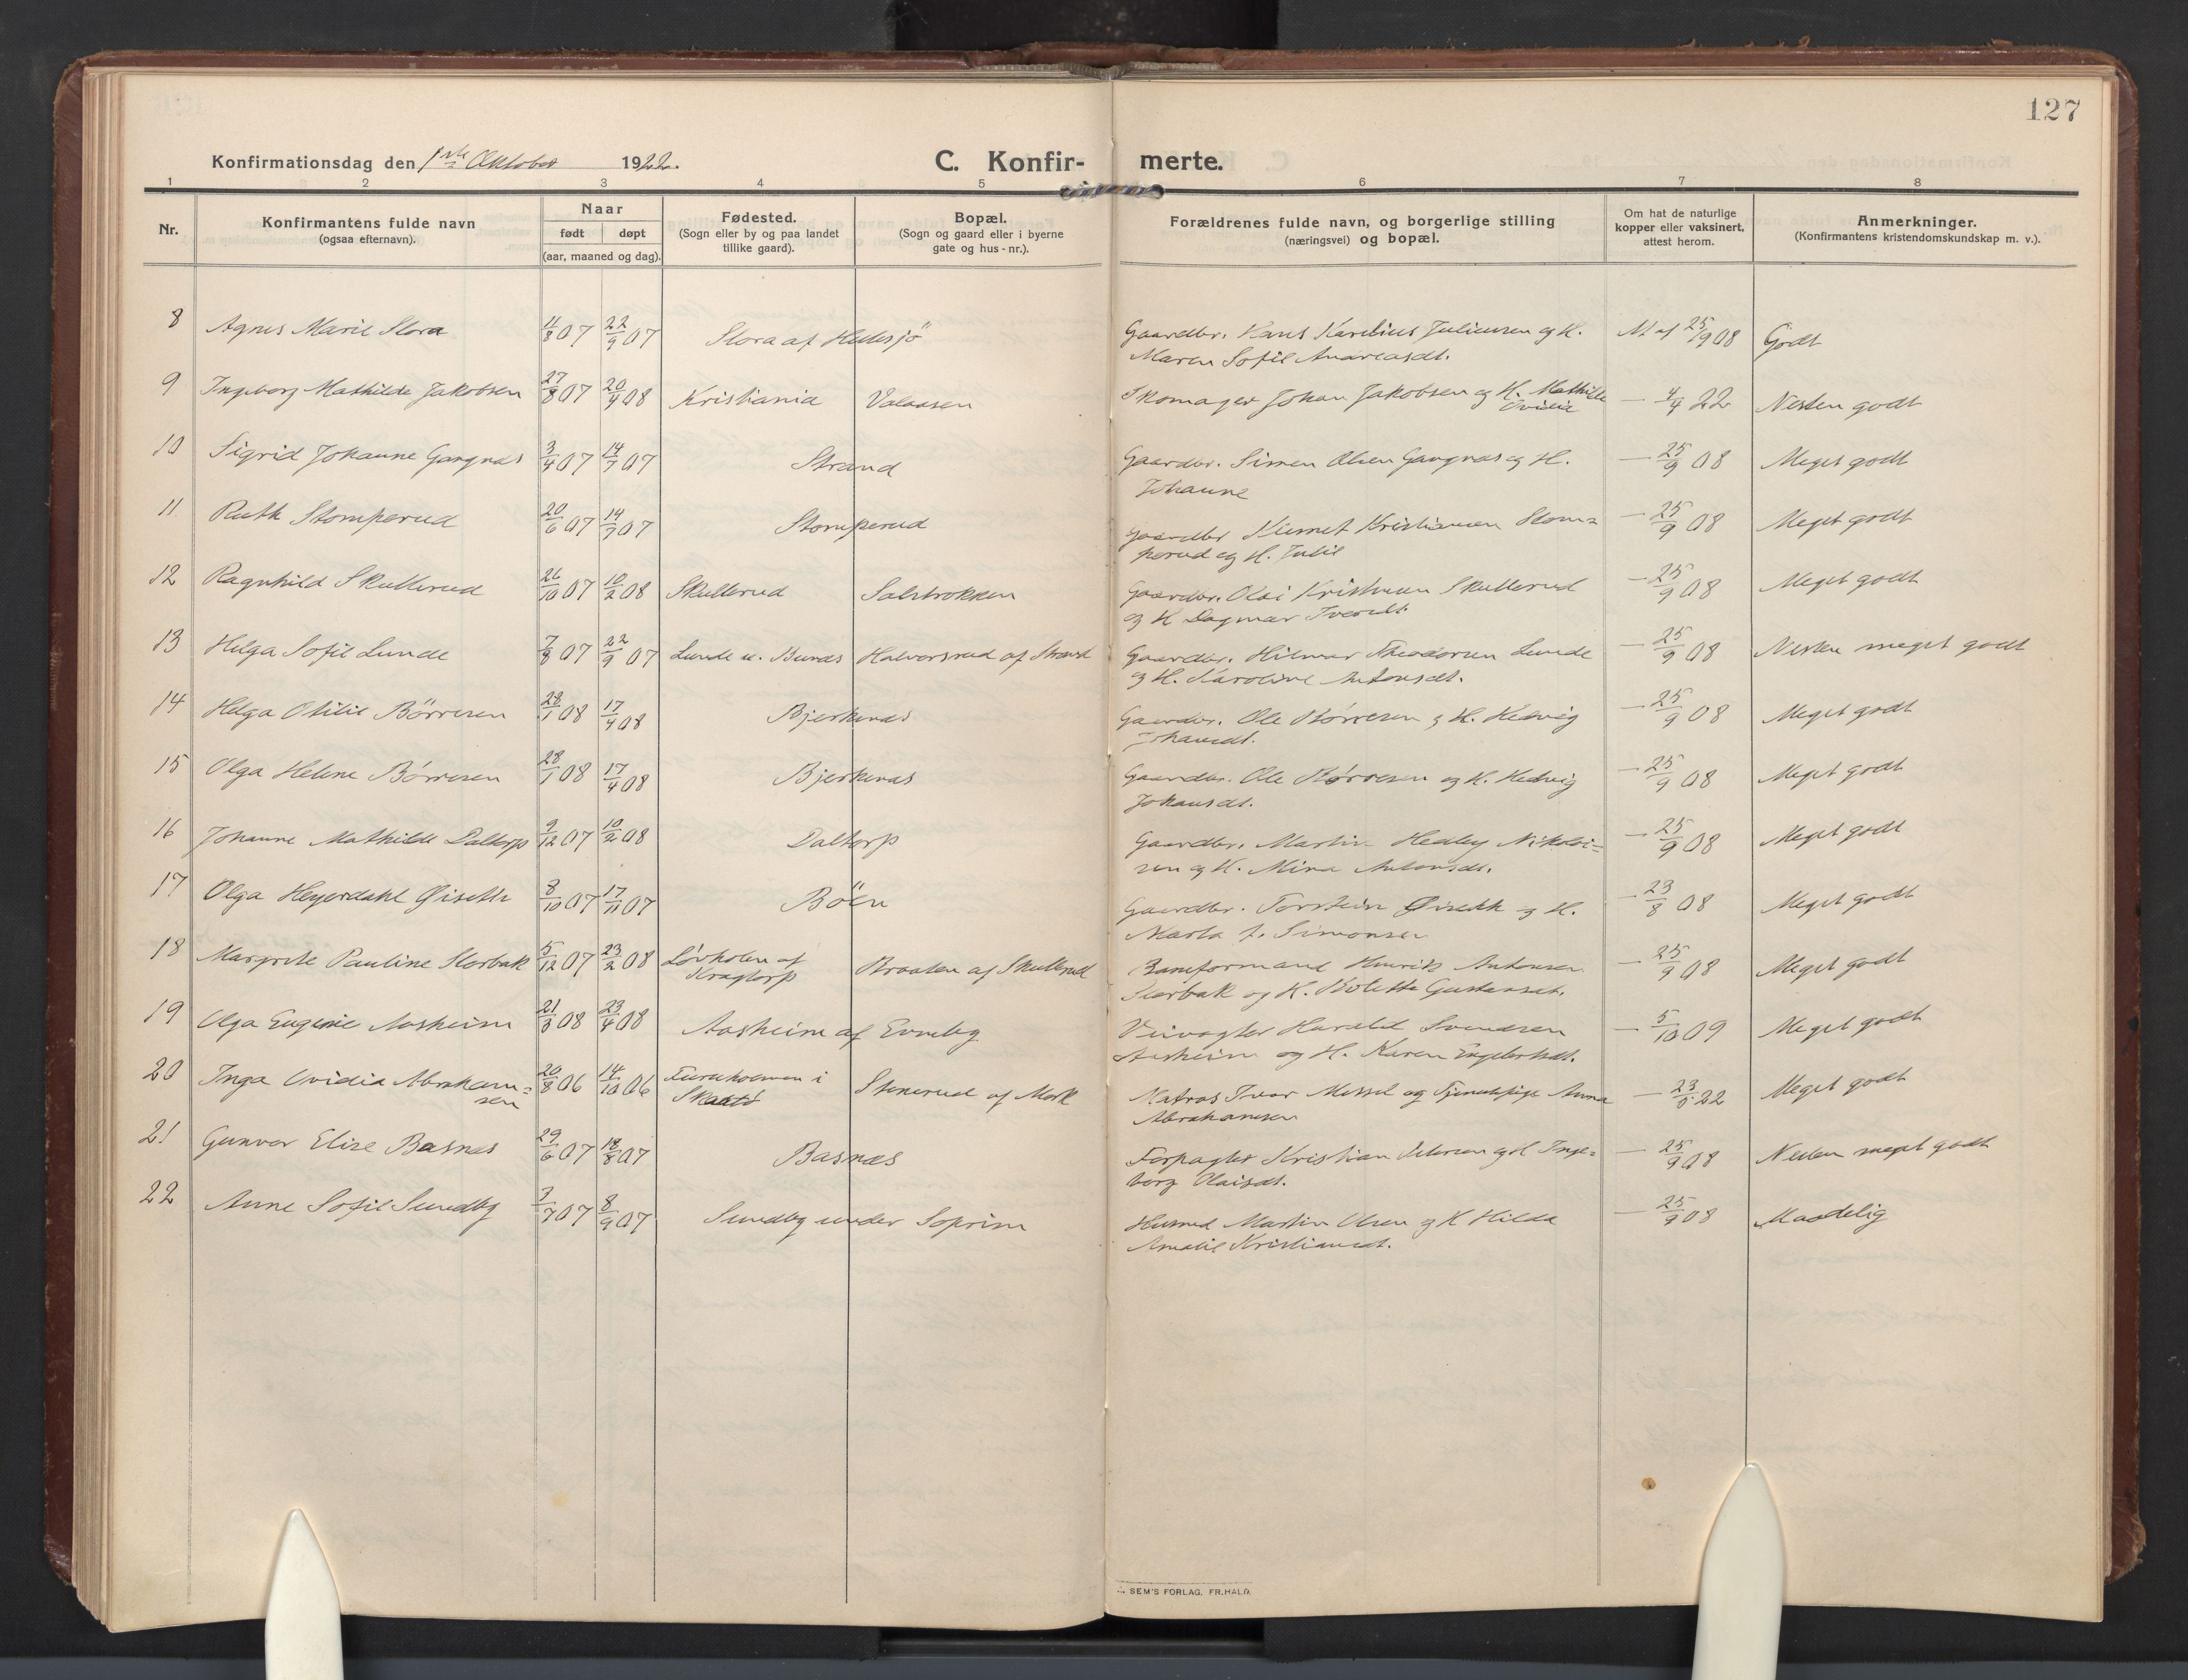 127
Konfirmationsdag den 1ste Oktober 1922.
C. Konfir- merte.
1 2 3 4 5 6 7 8
Nr.
Konfirmantens fulde navn
(ogsaa efternavn).
Naar
født døpt
(aar, maaned og dag).
Fødested.
(Sogn eller by og paa landet
tillike gaard).
Bopæl.
(Sogn og gaard eller i byerne
gate og hus-nr.).
Forældrenes fulde navn, og borgerlige stilling
(næringsvei) og bopæl.
Om hat de naturlige
kopper eller vaksinert,
attest herom.
Anmerkninger.
(Konfirmantens kristendomskundskap m. v.).
8 Agnes Marie Slora 11/8 07 22/9 07 Slora af Hellesjö Gaardbr. Hans Karelius Juliussen og H. M af 25/9 08 Godt
Maren Sofie Andreasdt.
9 Ingeborg Mathilde Jakobsen 27/8 07 20/4 08 Kristiania Valaasen Skomager Johan Jakobsen og H. Mathilde — 4/4 22 Nesten godt
Ovidia
10 Sigrid Johanne Gangnæs 3/4 07 14/7 07 Strand Gaardbr. Simen Olsen Gangnæs og H. — 25/9 08 Meget godt
Johanne
11 Ruth Stomperud 20/6 07 14/7 07 Stomperud Gaardbr Kristiansen Stom= — 25/9 08 Meget godt
perud og H. Julie
12 Ragnhild Skullerud 26/10 07 10/2 08 Skullerud Salstrokken Gaardbr. Olai Kristiansen Skullerud — 25/9 08 Meget godt
og H Dagmar Iversdt.
13 Helga Sofie Lunde 7/8 07 22/9 07 Lunde u. Bunæs Halvorsrud af Strand Gaardbr. Hilmar Theodorsen Lunde — 25/9 08 Nesten meget godt
og H. Karoline Antonsdt.
14 Helga Otilie Börresen 28/1 08 17/4 08 Bjerkenæs Gaardbr. Ole Börresen og H. Hedvig — 25/9 08 Meget godt
Johansdt.
15 Olga Helene Börresen 28/1 08 17/4 08 Bjerkenæs Gaardbr. Ole Börresen og H. Hedvig — 25/9 08 Meget godt
Johansdt.
16 Johanne Mathilde Daltorp 9/12 07 10/2 08 Daltorp Gaardbr. Martin Hedley Nikolai= — 25/9 08 Meget godt
sen og H. Mina Antonsdt.
17 Olga Heyerdahl Øiseth 8/10 07 17/11 07 Böen Gaardbr. Torstein Øiseth og H. — 23/8 08 Meget godt
Marta f. Simonsen
18 Margrete Pauline Storbak 5/12 07 23/2 08 Lövholen af Braaten af Skullerud Baneformand Henrik Antonsen — 25/9 08 Meget godt
Kragtorp Storbak og H. Bolette Gustavsdt.
19 Olga Eugenie Aasheim 21/3 08 23/4 08 Aasheim af Evneby Veivogter Harald Svendsen — 5/10 09 Meget godt
Aasheim og H. Karen Engebretsdt.
20 Inga Ovidia Abraham= 20/8 06 14/10 06 Furuholmen i Stenerud af Mörk Matros Ivar Messel og Tjenestepige Anna — 23/8 22 Meget godt
sen Skaatö Abrahamsen
21 Gunvor Elise Basnæs 29/6 07 18/8 07 Basnæs Forpagter Kristian Petersen og H Inge= — 25/9 08 Nesten meget godt
borg Olaisdt.
22 Anne Sofie Sundby 3/7 07 8/9 07 Sundby under Soprim Husmd Martin Olsen og H Hilda — 25/9 08 Maadelig
Amalie Kristiansdt.
SEM'S FORLAG. FR.HALD.